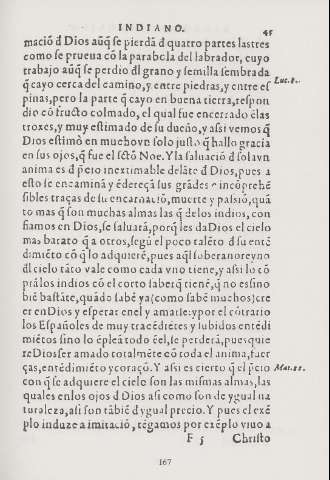 INDIANO. 45
mació đ Dios aūq̃ se pierdã đ quatro partes lastres
como se prueua cõ la parabola del labrador, cuyo
trabajo aūq̃ se perdio đl grano y semilla sembrada
q̃ cayo cerca del camino, y entre piedras, y entre es Luc. 8.
pinas, pero la parte q̃ cayo en buena tierra, respon
dio cõ fructo colmado, el qual fue encerrado ẽlas
troxes, y muy estimado de su dueño, y assi vemos q̃
Dios estimò en mucho vn solo justo q̃ hallo gracia
en sus ojos, q̃ fue el sctõ Noe. Y la saluació đ sola vn
anima es đ p̃cio inextimable delãte đ Dios, pues a
esto se encaminã y ẽdereçã sus grãdes e incõprehẽ
sibles traças de su encarnació, muerte y passiõ, quã
to mas q̃ son muchas almas las q̃ delos indios, con
fiamos en Dios, se saluarã, porq̃ les da Dios el cielo
mas barato q̃ a otros, segũ el poco talẽto đ su entẽ
dimiẽto cõ q̃ lo adquirẽ, pues aq̃l soberano reyno
đl cielo tãto vale como cada vno tiene, y assi lo cõ
prã los indios cõ el corto saber q̃ tienẽ, q̃ no es sino
biẽ bastãte, quãdo sabẽ ya (como sabẽ muchos) cre
er en Dios y esperar en el y amarle: y por el cõtrario
los Españoles de muy tracẽdiẽtes y subidos entẽdi
miẽtos sino lo ẽpleã todo ẽel, se perderã, pues quie
re Dios ser amado totalmẽte cõ toda el anima, fuer
ças, entẽdimiẽto y coraçõ. Y assi es cierto q̃ el p̃cio Mat. 22.
con q̃ se adquiere el cielo son las mismas almas, las
quales en los ojos đ Dios assi como son de ygual na
turaleza, assi son tãbiẽ đ ygual precio. Y pues el exẽ
plo induze a imitació, tẽgamos por exẽplo viuo a
F 5 Christo
167